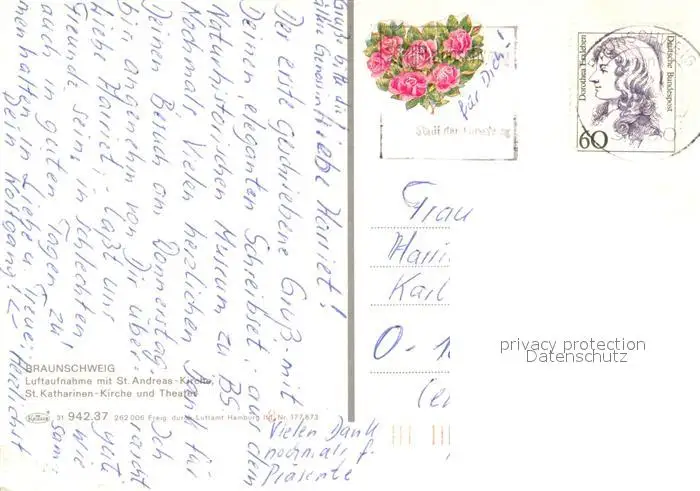 Liebe Harriet!
Der erste geschriebene Gruß - mit
Deinem eleganten Schreibset - aus dem
Naturhistorischen Museum zu BS.
Nochmals Vielen herzlichen Dank für
Deinen Besuch am Donnerstag. Ich
bin angenehm von Dir überrascht
Liebe Harriet; Laßt uns gute
Freunde sein, in schlechten wie
auch in guten Tagen zu-
sammenhalten in Liebe u. Treue.
Dein Wolfgang! Herzlichst
Gruß bitte die
Vielen Dank
nochmals f.
Präsente
für Dich!
Stadt der Forschung
Dorothea Erxleben
Deutsche Bundespost
60
Frau
Harri
Karl
O-1
BRAUNSCHWEIG
Luftaufnahme mit St. Andreas-Kirche,
St. Katharinen-Kirche und Theater
31 942.37 262 006 Freig. durch Luftamt Hamburg lfd. Nr. 177873
privacy protection
Datenschutz